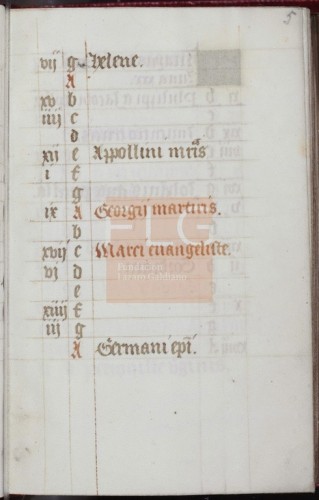 5
vij g helene.
A
xv b
iiij c
d
xij e Appollini mris
i f
g
ix A Georgij martiris.
b
xvij c Marci euangeliste.
vj d
e
xiiij f
iij g
A Germani epi.
FLG
Fundación
Lázaro Galdiano